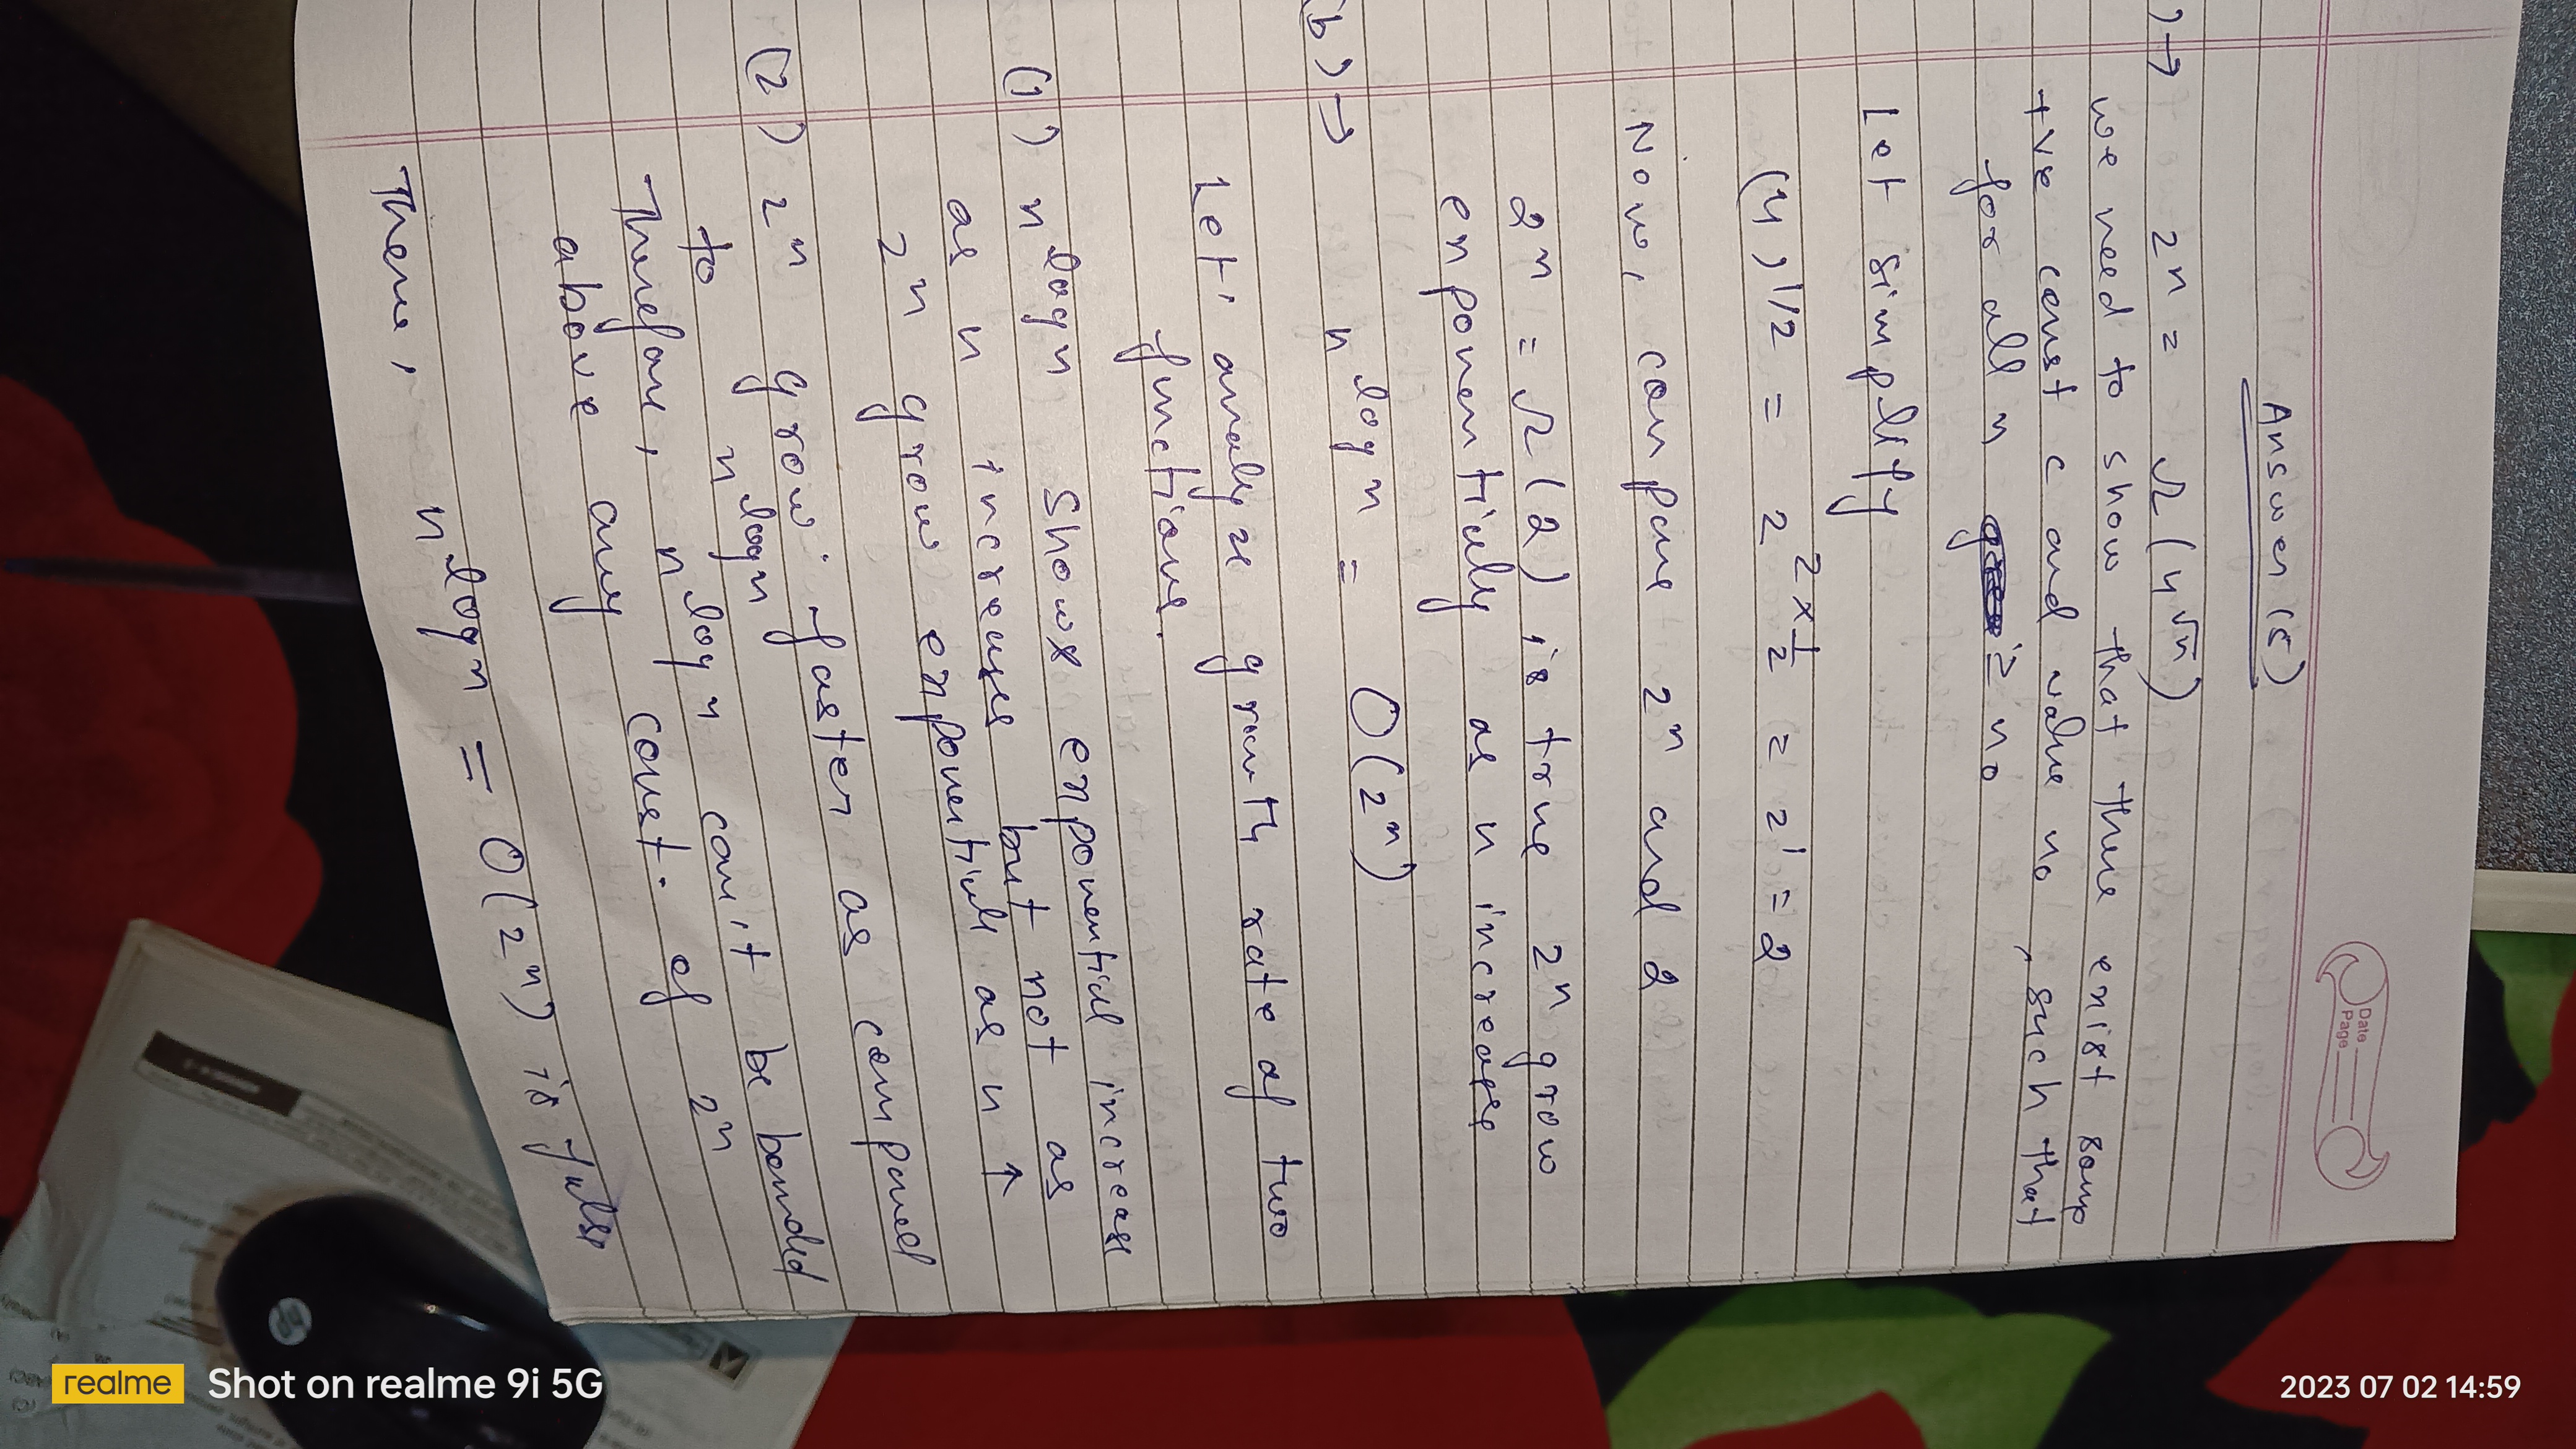 Date
Page
Answer (5)
)→ 2^n = Ω (4^√n)
we need to show that there exist some
+ve const c and value n0, such that
for all n ≥ n0
Let simplify
(4)^1/2 = 2^2×1/2 = 2^1 = 2
Now, compare 2^n and 2
2^n = Ω (2) is true 2^n grow
exponentialy as n increases
(b)→ n^log n = O(2^n)
Let' analyze growth rate of two
functions.
(1) n^log n shows exponential increase
as n increases but not as
2^n grow exponential as n ↑
(2) 2^n grow faster as compared
to n^log n
Therefore, n^log n can't be bounded
above any const. of 2^n
There, n^log n = O(2^n) is false
2023 07 02 14:59
realme Shot on realme 9i 5G
hp